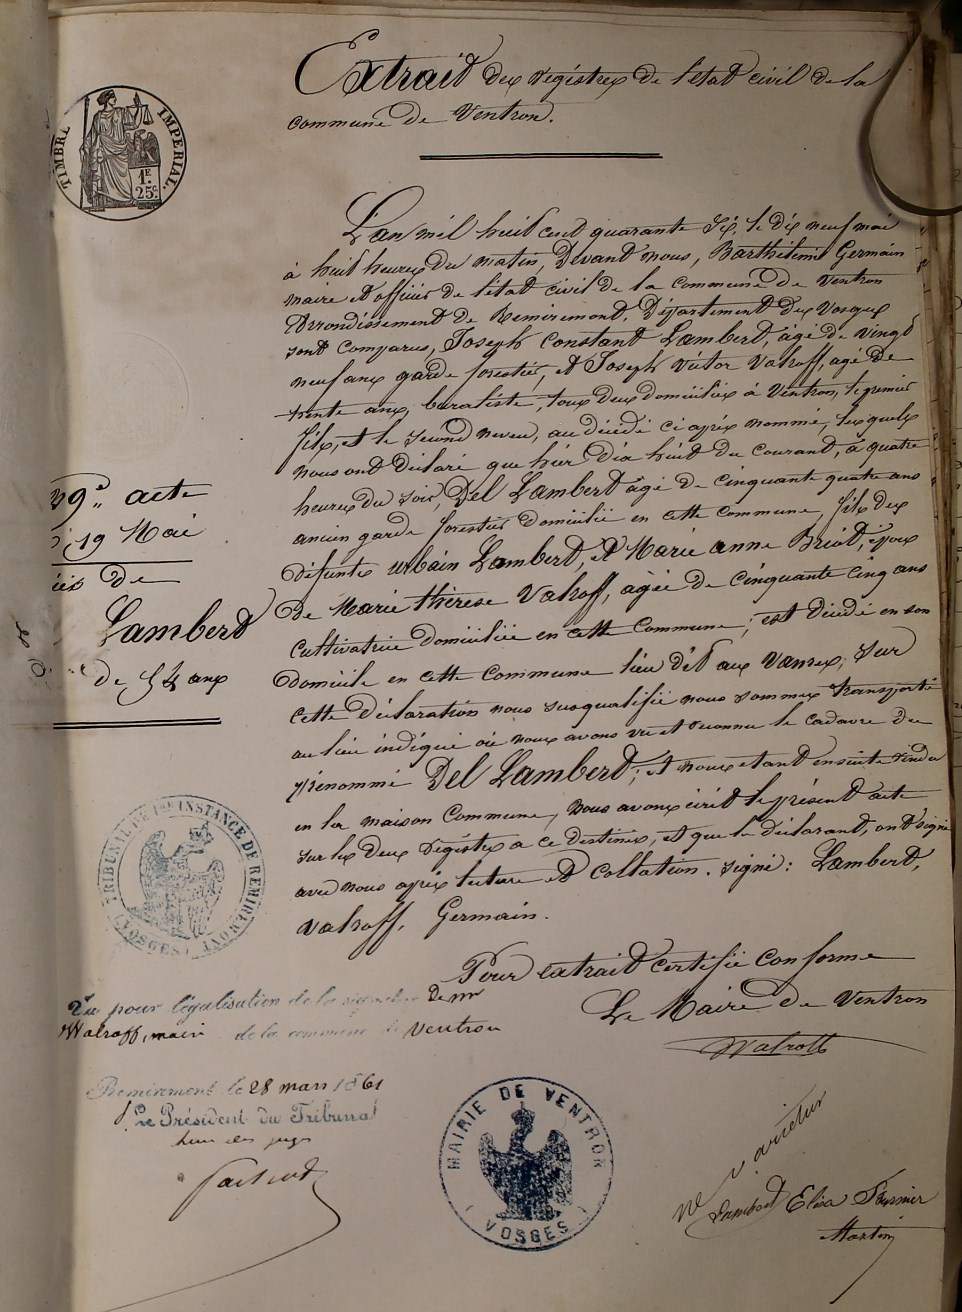 Extrait des régistres de l'état civil de la
commune de Ventron.
TIMBRE IMPERIAL.
1F.
25c.
L'an mil huit cent quarante six, le dix neuf mai
à huit heures du matin, Devant nous, Barthélemi Germain
maire et officier de l'état civil de la commune de Ventron
Arrondissement de Remiremont, Département des Vosges
sont comparus, Joseph Constant Lambert, âgé de vingt
neuf ans garde forestier, et Joseph Victor Valroff, agé de
trente ans, buraliste, tous deux domiciliés à Ventron, le premier
fils, et le second neveu, au décédé ci après nommé, lesquels
nous ont déclaré que hier dix huit du courant, à quatre
heures du soir, Del Lambert âgé de cinquante quatre ans
ancien garde forestier domicilié en cette commune, fils des
défunts Urbain Lambert, et Marie Anne Briot, époux
de Marie Thérèse Valroff, agée de cinquante cinq ans
cultivatrice domiciliée en cette commune; est décédé en son
domicile en cette commune lieu dit aux Vanses; Sur
cette déclaration nous susqualifié nous sommes transporté
au lieu indiqué où nous avons vu et reconnu le cadavre du
prénommé Del Lambert; et nous etant ensuite rendu
en la maison commune, nous avons écrit le présent acte
sur les deux régistres a ce destinés, et que le déclarant, ont signé
avec nous après lecture et collation. signé: Lambert,
Valroff, Germain.
29e acte
19 Mai
de
Lambert
de 54 ans
TRIBUNAL DE 1ère INSTANCE DE REMIREMONT
(VOSGES)
Pour extrait certifié conforme
Le Maire de Ventron
Walroff
Vu pour légalisation de la signature de mr
Walroff, maire de la commune de Ventron
Remiremont le 28 mars 1861
Le Président du Tribunal
MAIRIE DE VENTRON
(VOSGES)
ne varietur
Lambert Elisa
Martin